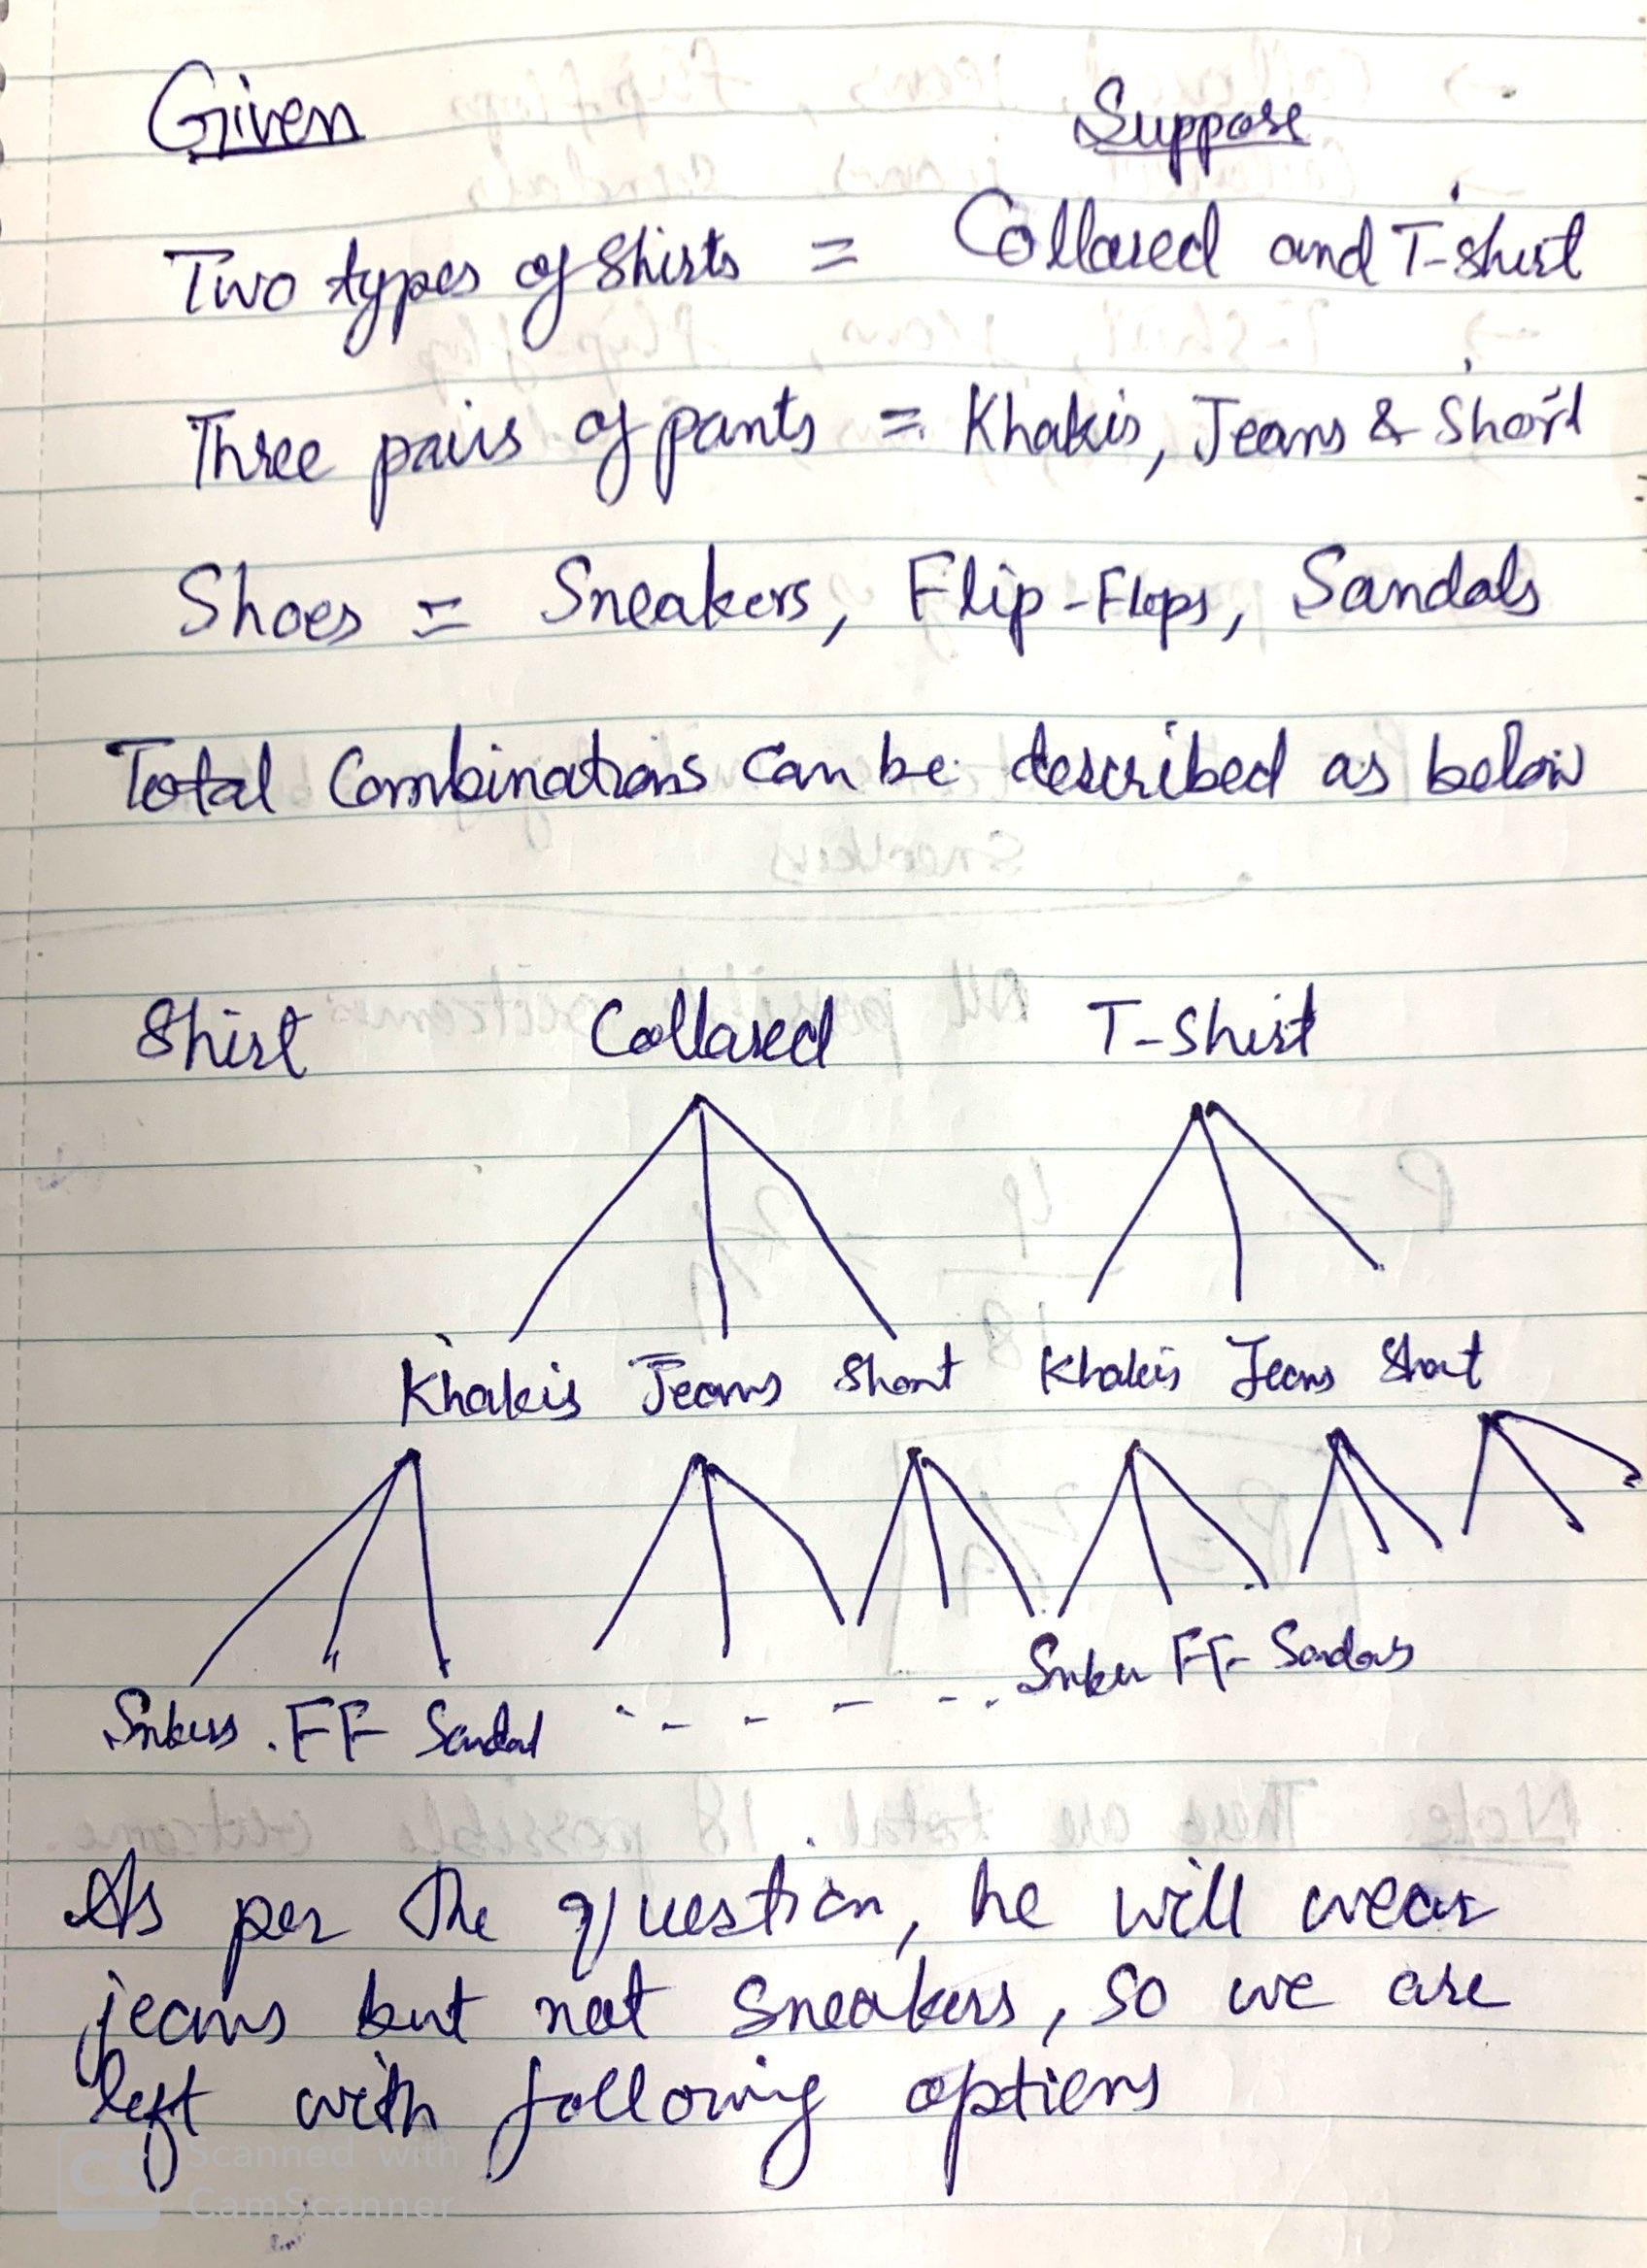 Given Suppose
Two types of Shirts = Collared and T-Shirt
Three pairs of pants = Khakis, Jeans & Short
Shoes = Sneakers, Flip-Flops, Sandals
Total Combinations can be described as below
Shirt Collared T-Shirt
Khakis Jeans Short Khakis Jeans Short
FF Sandal FF Sandals
As per the question, he will wear
jeans but not Sneakers, so we are
left with following options
CS Scanned with
CamScanner